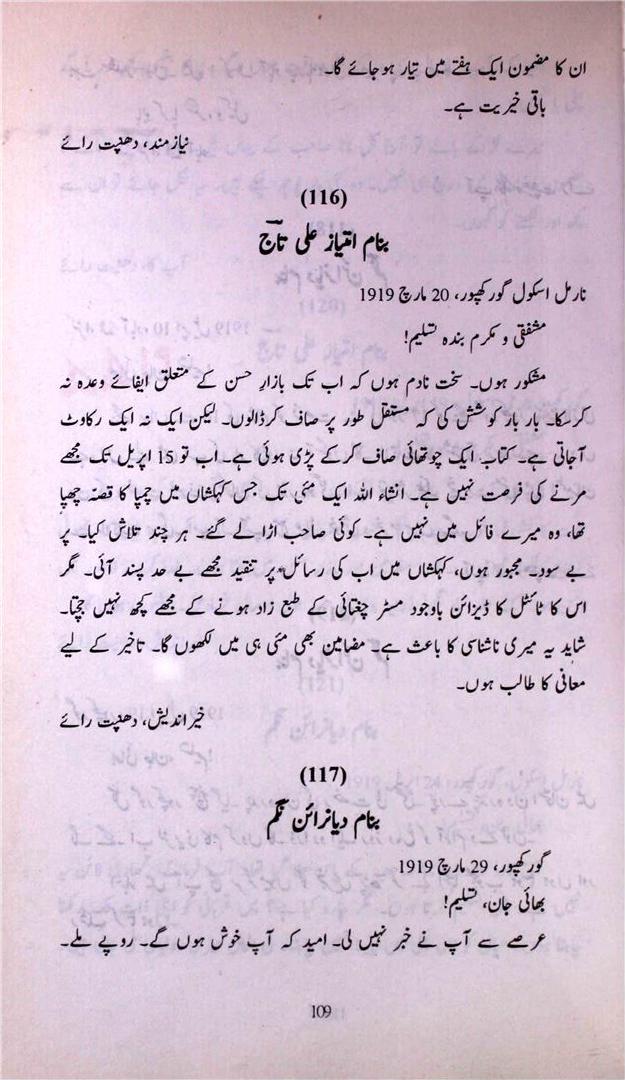 ان کا مضمون ایک ہفتے میں تیار ہوجائے گا۔
باقی خیریت ہے۔
نیازمند، دھنپت رائے
(116)
بنام امتیاز علی تاج
نارمل اسکول گورکھپور، 20 مارچ 1919
مشفقی و مکرم بندہ تسلیم!
مشکور ہوں۔ سخت نادم ہوں کہ اب تک بازارِ حسن کے متعلق ایفائے وعدہ نہ
کرسکا۔ بار بار کوشش کی کہ مستقل طور پر صاف کرڈالوں۔ لیکن ایک نہ ایک رکاوٹ
آجاتی ہے۔ کتاب ایک چوتھائی صاف کرکے پڑی ہوئی ہے۔ اب تو 15 اپریل تک مجھے
مرنے کی فرصت نہیں ہے۔ انشاء اللہ ایک مئی تک جس کہکشاں میں چمپا کا قصہ چھپا
تھا، وہ میرے فائل میں نہیں ہے۔ کوئی صاحب اڑا لے گئے۔ ہر چند تلاش کیا۔ پر
بے سود۔ مجبور ہوں، کہکشاں میں اب کی رسائل پر تنقید مجھے بے حد پسند آئی۔ مگر
اس کا ٹائٹل کا ڈیزائن باوجود مسٹر چغتائی کے طبع زاد ہونے کے مجھے کچھ نہیں جچتا۔
شاید یہ میری ناشناسی کا باعث ہے۔ مضامین بھی مئی ہی میں لکھوں گا۔ تاخیر کے لیے
معافی کا طالب ہوں۔
خیراندیش، دھنپت رائے
(117)
بنام دیانرائن نگم
گورکھپور، 29 مارچ 1919
بھائی جان، تسلیم!
عرصے سے آپ نے خبر نہیں لی۔ امید کہ آپ خوش ہوں گے۔ روپے ملے۔
109